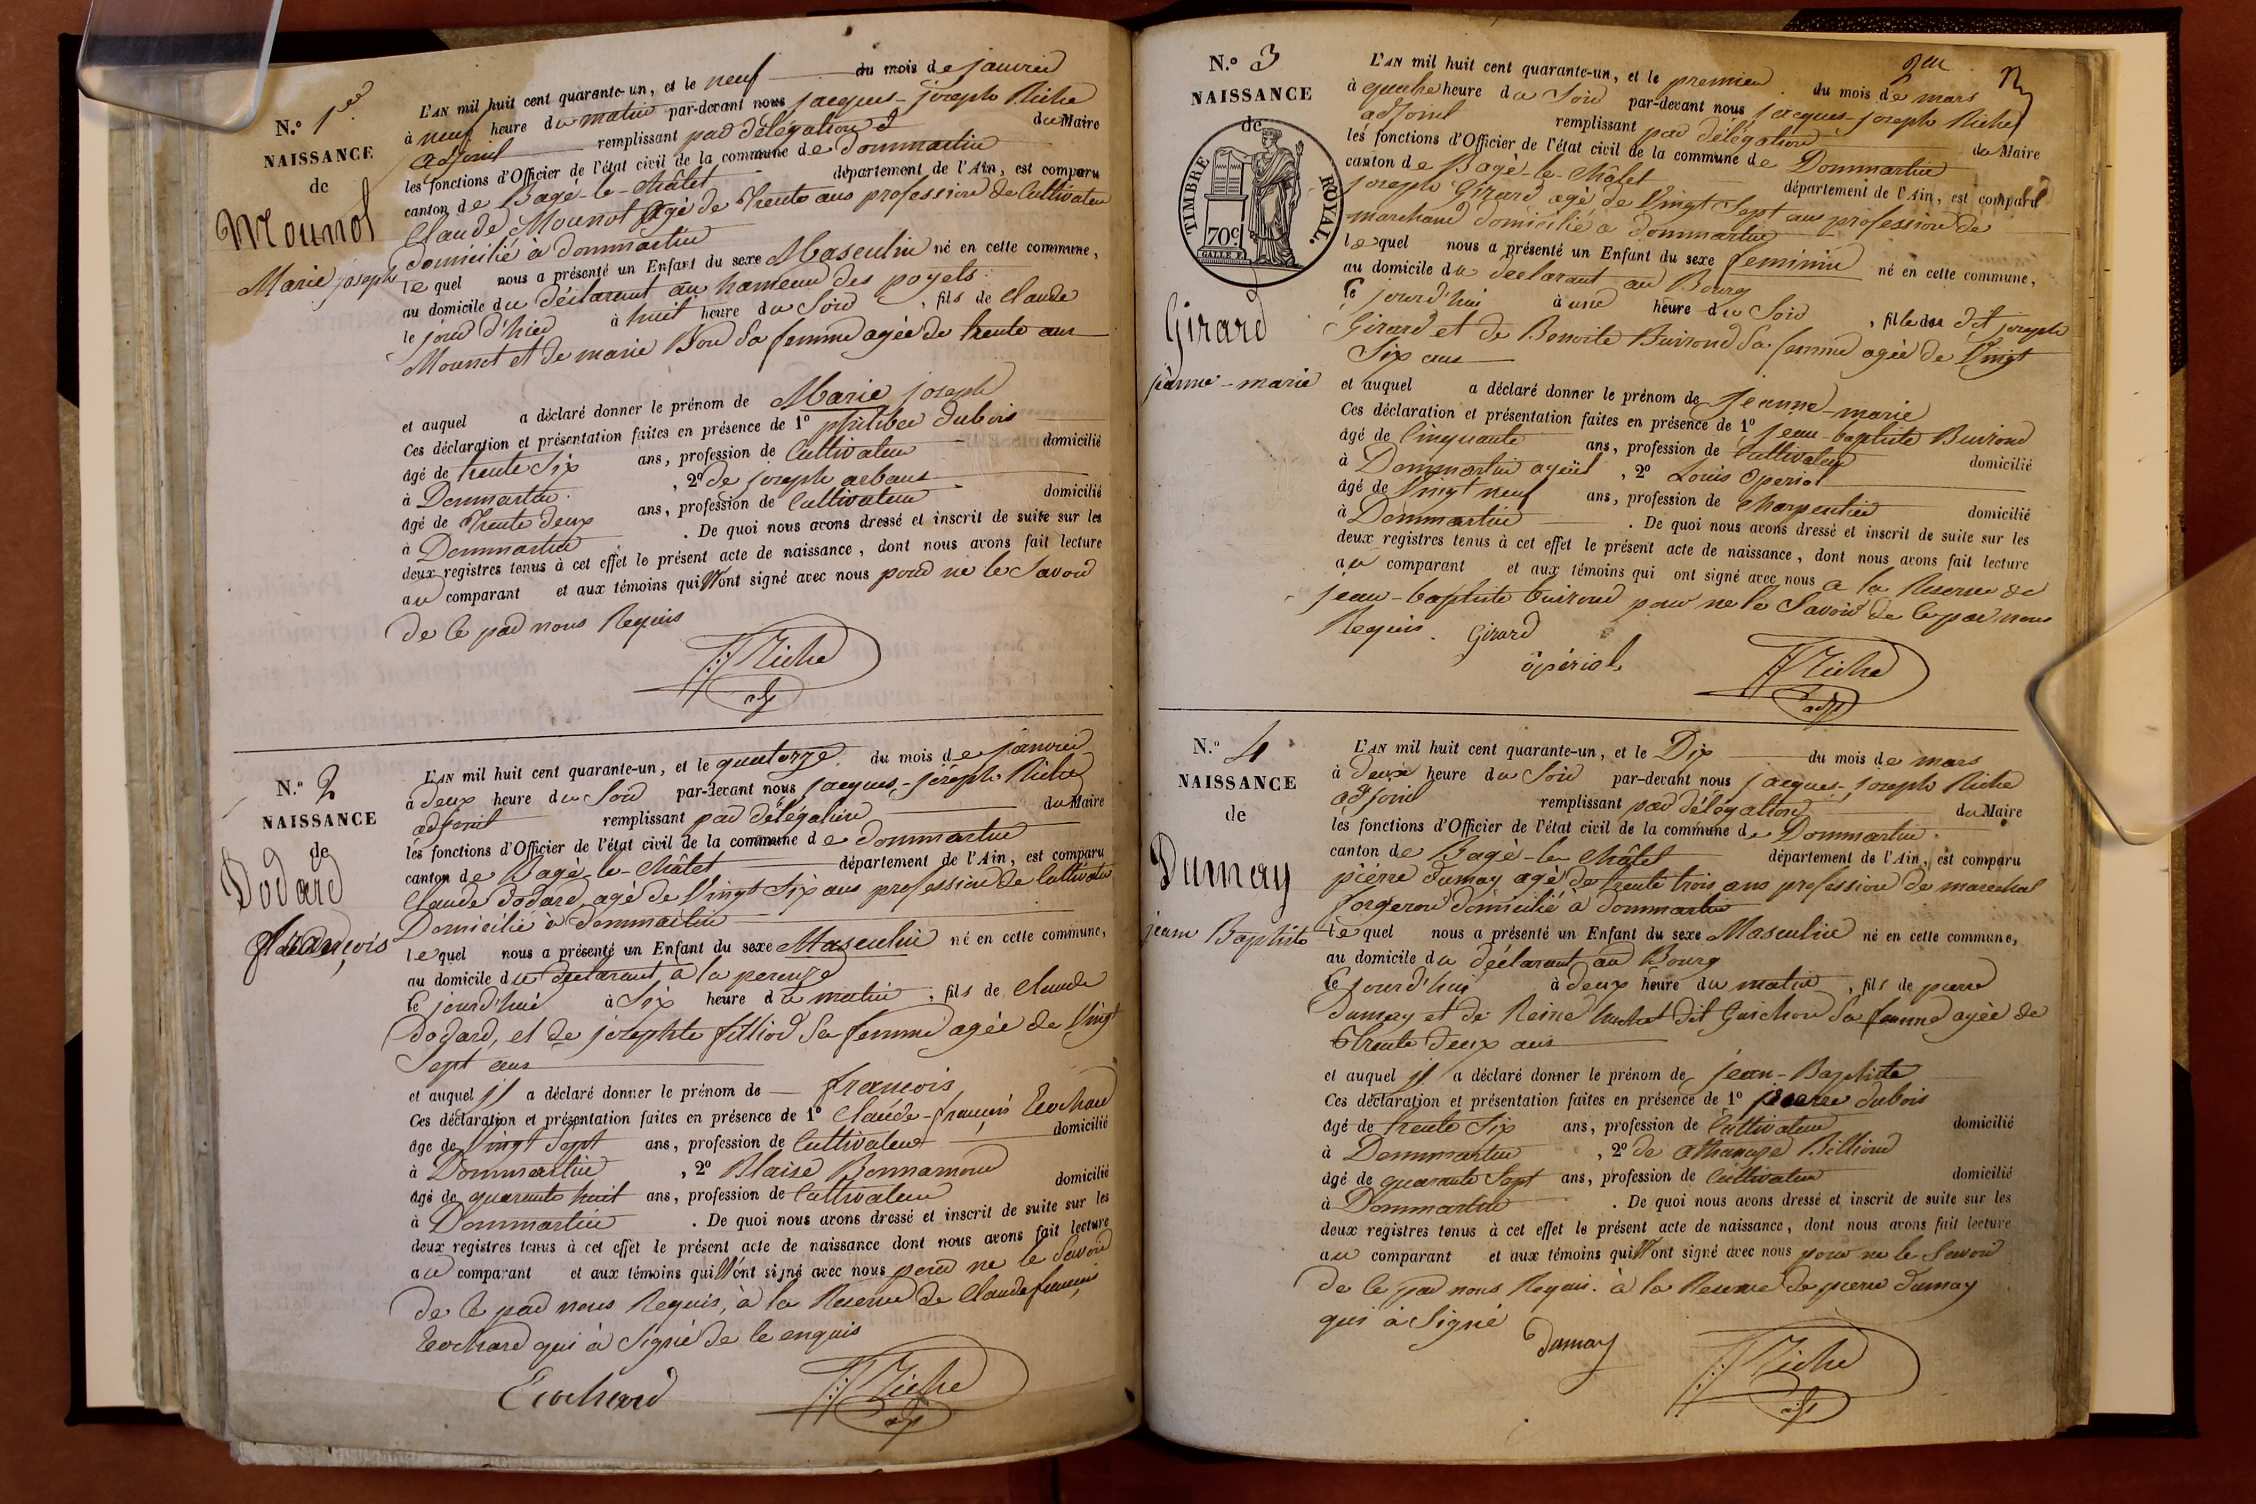 N.º 1er
NAISSANCE
de
Mounot
Marie joseph
L'AN mil huit cent quarante-un, et le neuf du mois de janvier
à neuf heure du matin par-devant nous jacques-joseph Riche
adjoint remplissant par délégation du Maire
les fonctions d'Officier de l'état civil de la commune de dommartin
canton de Bagé-le-châtel département de l'Ain, est comparu
Claude Mounot agé de trente ans profession de Cultivateur
domicilié à dommartin
lequel nous a présenté un Enfant du sexe Masculin né en cette commune,
au domicile du déclarant au hameau des poyets
le jour d'hier à huit heure du Soir, fils de Claude
Mounot et de marie Bon Sa femme agée de trente ans
et auquel a déclaré donner le prénom de Marie joseph
Ces déclaration et présentation faites en présence de 1º philiber dubois
âgé de trente Six ans, profession de Cultivateur domicilié
à Dommartin, 2º de joseph arbant
âgé de trente deux ans, profession de Cultivateur domicilié
à Dommartin. De quoi nous avons dressé et inscrit de suite sur les
deux registres tenus à cet effet le présent acte de naissance, dont nous avons fait lecture
au comparant et aux témoins qui n'ont signé avec nous pour ne le Savoir
de ce par nous Requis
JJRiche
adj
N.º 2
NAISSANCE
de
Dodard
françois
L'AN mil huit cent quarante-un, et le quatorze du mois de janvier
à deux heure du Soir par-devant nous jacques-joseph Riche
adjoint remplissant par délégation du Maire
les fonctions d'Officier de l'état civil de la commune de dommartin
canton de Bagé-le-châtel département de l'Ain, est comparu
Claude dodard agé de Vingt Six ans profession de Cultivateur
Domicilié à dommartin
lequel nous a présenté un Enfant du sexe Masculin né en cette commune,
au domicile du déclarant à la perouze
Ce jourd'hui à Six heure du matin, fils de Claude
dodard, et de josephte filliod Sa femme agée de Vingt
Sept ans
et auquel il a déclaré donner le prénom de françois
Ces déclaration et présentation faites en présence de 1º Claude-françois Ecochard
âge de Vingt Sept ans, profession de Cultivateur domicilié
à Dommartin, 2º Blaise Bonnamour
âgé de quarante huit ans, profession de Cultivateur domicilié
à Dommartin. De quoi nous avons dressé et inscrit de suite sur les
deux registres tenus à cet effet le présent acte de naissance dont nous avons fait lecture
au comparant et aux témoins qui n'ont signé avec nous pour ne le Savoir
de ce par nous Requis, à la Reserve de Claude françois
Ecochard qui à Signé de ce enquis
Ecochard
JJRiche
adj
N.º 3
NAISSANCE
de
TIMBRE ROYAL.
70c
Girard
jeanne-marie
L'AN mil huit cent quarante-un, et le premier du mois de mars
à quatre heure du Soir par-devant nous jacques-joseph Riche
adjoint remplissant par délégation du Maire
les fonctions d'Officier de l'état civil de la commune de Dommartin
canton de Bagé-le-châtel département de l'Ain, est comparu
joseph Girard agé de Vingt Sept ans profession de
marchand domicilié à dommartin
lequel nous a présenté un Enfant du sexe feminin né en cette commune,
au domicile du déclarant au Bourg
Ce jourd'hui à une heure du Soir, fille du dit joseph
Girard et de Benoite Buirond Sa femme agée de Vingt
Six ans
et auquel a déclaré donner le prénom de jeanne-marie
Ces déclaration et présentation faites en présence de 1º jean-baptiste Buirond
âgé de Cinquante ans, profession de Cultivateur domicilié
à Dommartin ayeul, 2º Louis Opériol
âgé de Vingt neuf ans, profession de Charpentier domicilié
à Dommartin. De quoi nous avons dressé et inscrit de suite sur les
deux registres tenus à cet effet le présent acte de naissance, dont nous avons fait lecture
au comparant et aux témoins qui ont signé avec nous a la Reserve de
jean-baptiste buirond pour ne le Savoir de ce par nous
Requis. Girard
opériol
JJRiche
adj
N.º 4
NAISSANCE
de
Dumay
jean Baptiste
L'AN mil huit cent quarante-un, et le Dix du mois de mars
à deux heure du Soir par-devant nous jacques-joseph Riche
adjoint remplissant par délégation du Maire
les fonctions d'Officier de l'état civil de la commune de Dommartin.
canton de Bagé-le-châtel département de l'Ain, est comparu
pierre dumay agé de trente trois ans profession de marechal
forgeron domicilié à dommartin
lequel nous a présenté un Enfant du sexe Masculin né en cette commune,
au domicile du déclarant au Bourg
Ce jourd'hui à deux heure du matin, fils de pierre
dumay et de Reine huchet dit Guichon Sa femme agée de
trente deux ans
et auquel il a déclaré donner le prénom de jean-Baptiste
Ces déclaration et présentation faites en présence de 1º pierre dubois
âgé de trente Six ans, profession de Cultivateur domicilié
à Dommartin, 2º de athanaze Billioud
âgé de quarante Sept ans, profession de Cultivateur domicilié
à Dommartin. De quoi nous avons dressé et inscrit de suite sur les
deux registres tenus à cet effet le présent acte de naissance, dont nous avons fait lecture
au comparant et aux témoins qui n'ont signé avec nous pour ne le Savoir
de ce par nous Requis. à la Reserve de pierre dumay
qui à Signé
dumay
JJRiche
adj